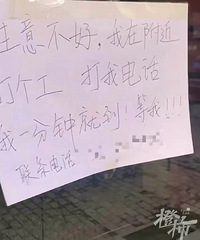 生意不好,我在附近
打个工 打我电话
我一分钟就到!等我!!!
联系电话
橙柿